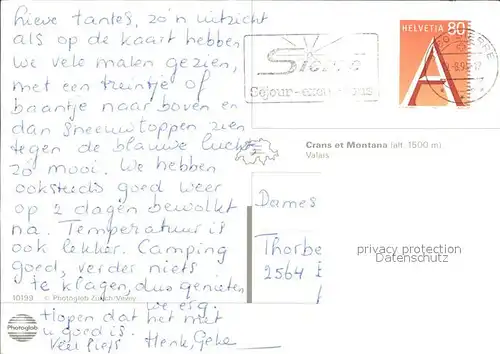 Lieve tantes, zo'n uitzicht
als op de kaart hebben
we vele malen gezien,
met een treintje of
baantje naar boven en
dan sneeuwtoppen zien
tegen de blauwe lucht
zo mooi. We hebben
ook steeds goed weer
op 2 dagen bewolkt
na. Temperatuur is
ook lekker. Camping
goed, verder niets
te klagen, dus genieten
we erg.
Hopen dat het met
u goed is.
Veel liefs Henk, Geke
HELVETIA 80
A
Sierre
Séjour-excursions
SIERRE
Crans et Montana (alt. 1500 m)
Valais
Dames
Thorbe
2564
privacy protection
Datenschutz
10199 © Photoglob Zürich/Vevey
Photoglob